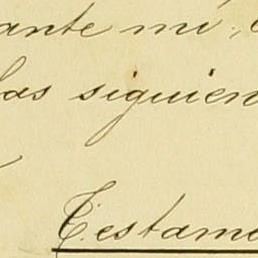 ante mi,
las siguien
Testame